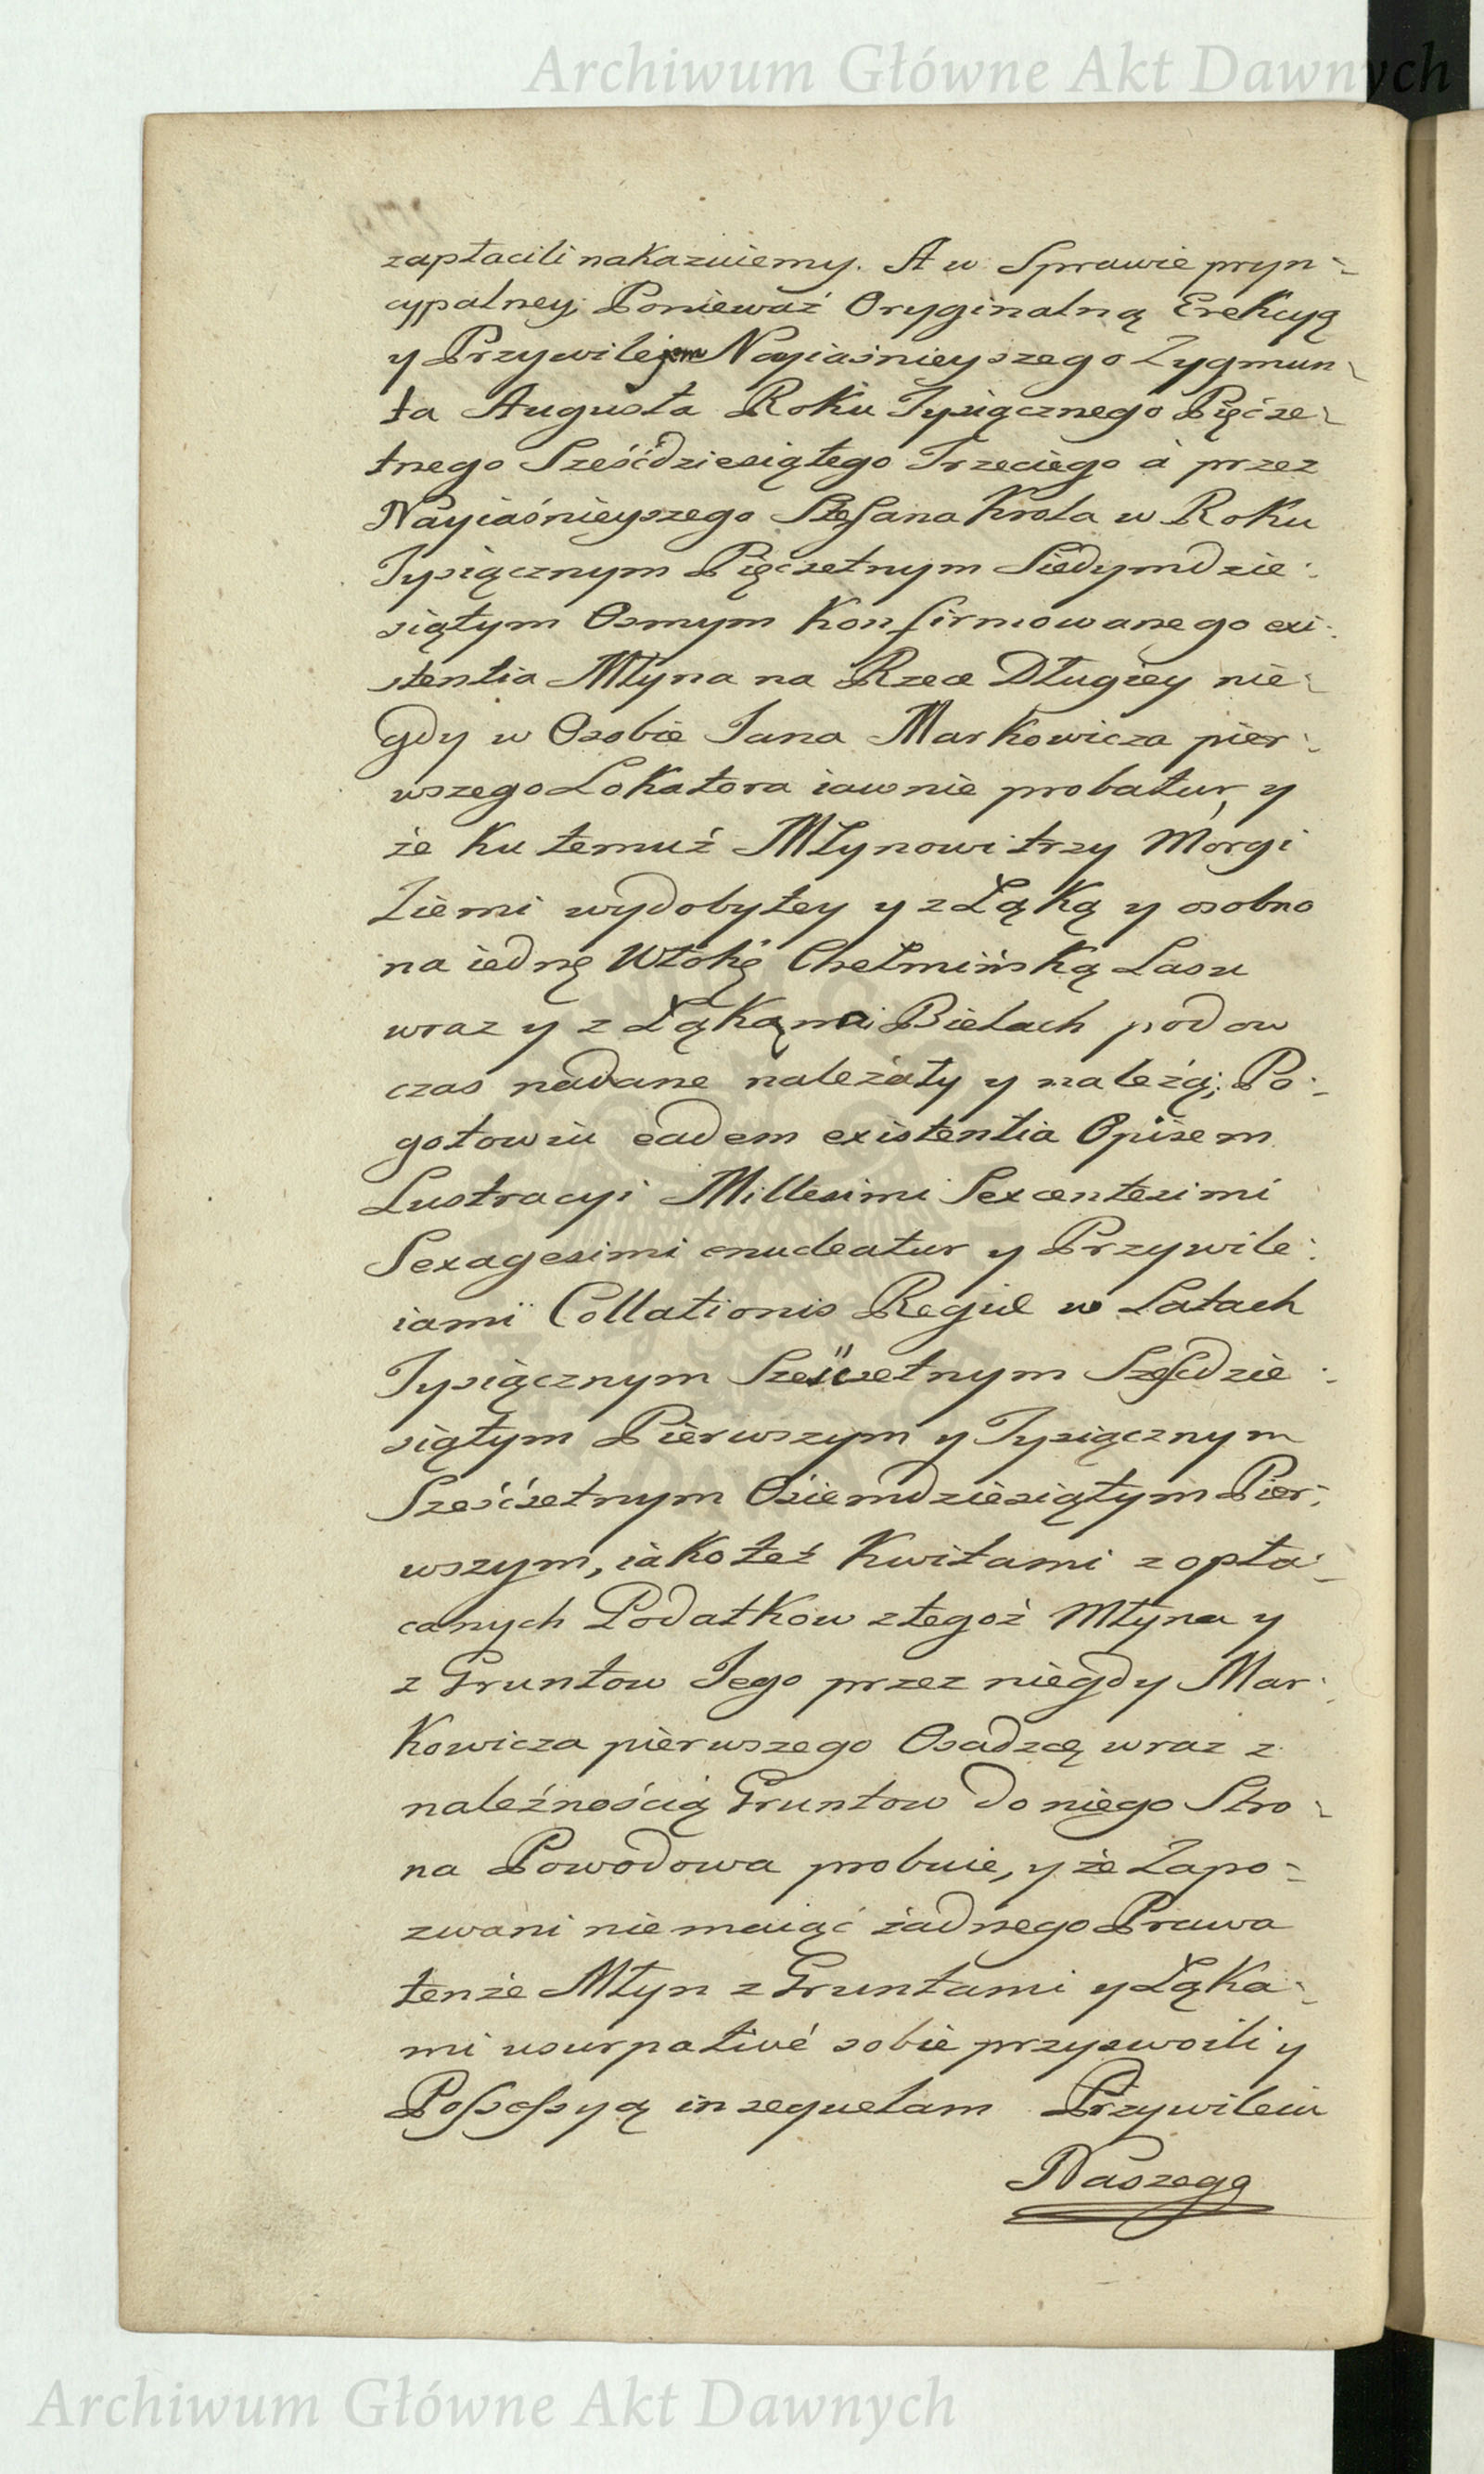 Archiwum Główne Akt Dawnych
zapłacili nakazuiemy. A w Sprawie pryn-
cypalney, Ponieważ Oryginalną Erekcyą
y Przywilejem Nayiaśnieyszego Zygmun-
ta Augusta Roku Tysiącznego Pięćse-
tnego Sześćdziesiątego Trzeciego á przez
Nayiaśnieyszego Stefana Krola w Roku
Tysiącznym Pięcsetnym Siedymdzie-
siątym Osmym Konfirmowanego exi-
stentia Młyna na Rzece Długiey nie-
gdy w Osobie Jana Markowicza pier-
wszego Lokatora iawnie probatur, y
że ku temuż Młynowi trzy Morgi
Ziemi wydobytey y z Łąką y osobno
na iednę Włokę Chełmińską Lasu
wraz y z Łąkami Bielach pod ow
czas nadane należały y należą; Po-
gotowiu eadem existentia Opisem
Lustracyi Millesimi Sexcentesimi
Sexagesimi enudeatur y Przywile-
iami Collationis Regiæ w Latach
Tysiącznym Sześćsetnym Sześcdzie-
siątym Pierwszym y Tysiącznym
Sześćsetnym Ośiemdziesiątym Pier-
wszym, iako też Kwitami z opła-
canych Podatkow z tegoż Młyna y
z Gruntow Jego przez niegdy Mar-
kowicza pierwszego Osadzcę wraz z
należnością Gruntow do niego Stro-
na Powodowa probuie, y że Zapo-
zwani nie maiąć żadnego Prawa
tenże Młyn z Gruntami y Łąka-
mi usurpativé sobie przyswoili y
Possessyą in sequelam Przywileiu
Naszego
Archiwum Główne Akt Dawnych